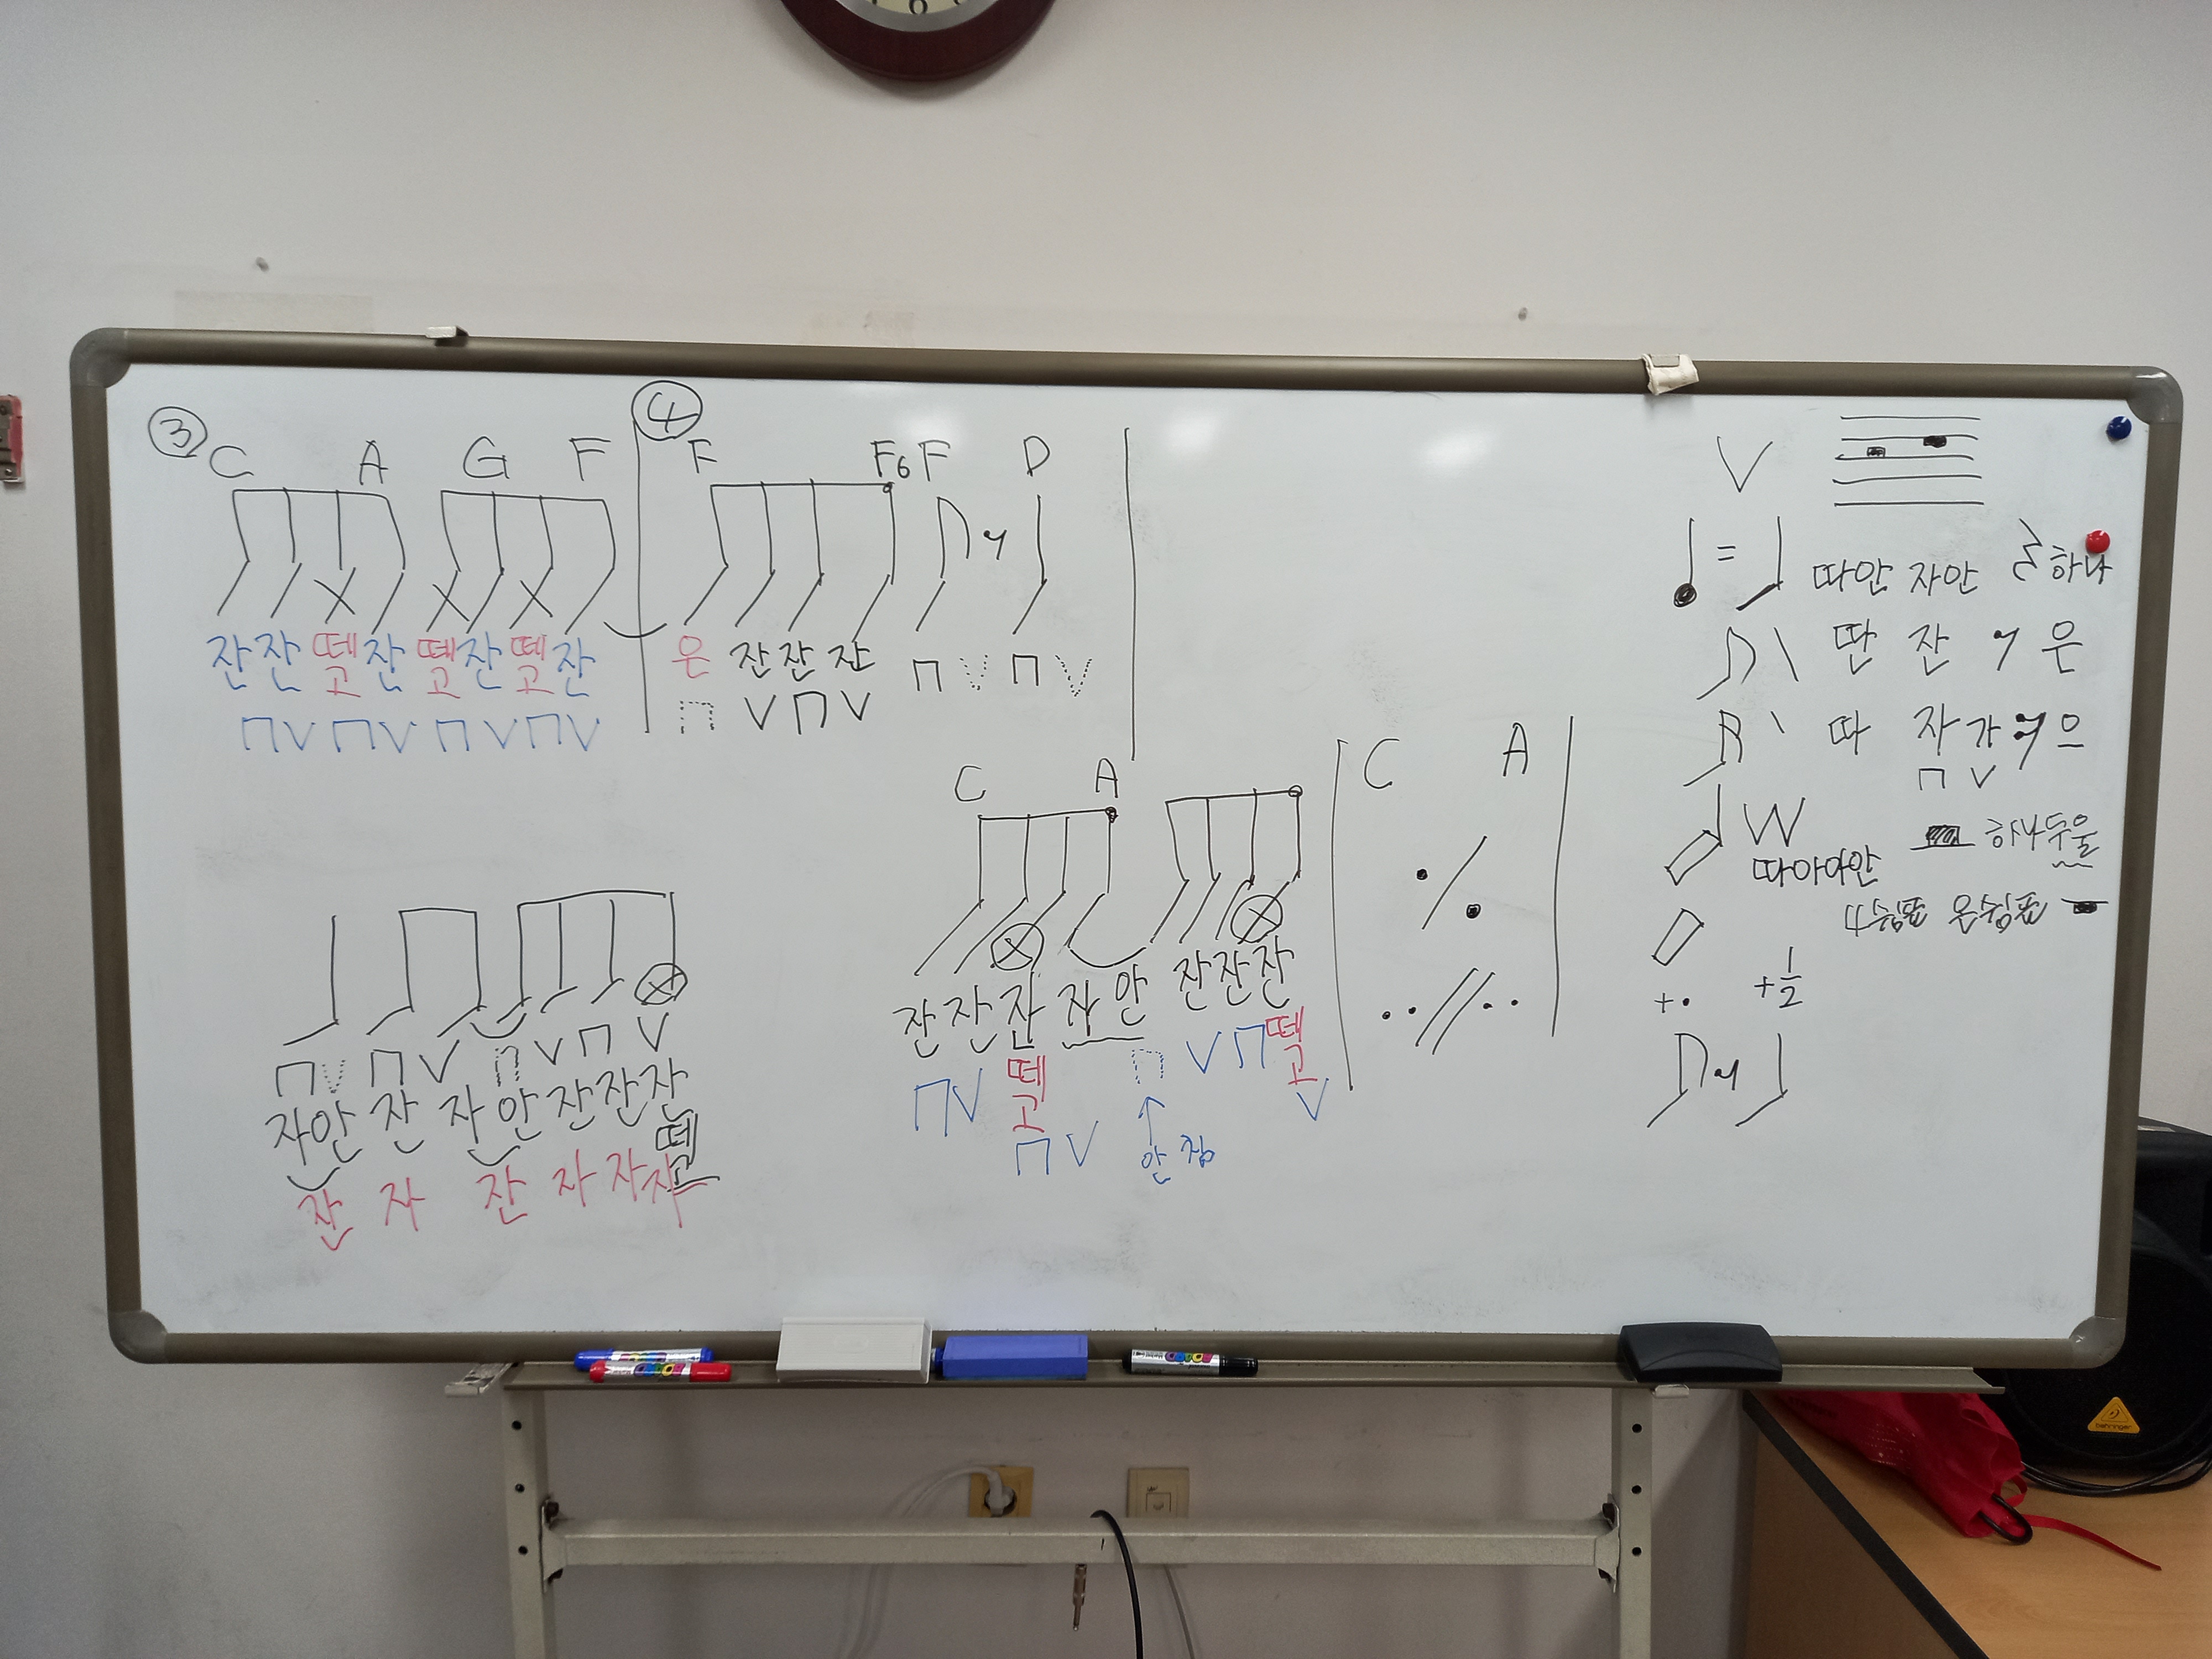 ③ C A G F ④ F F6 F D
잔 잔 떼고 잔 떼고 잔 떼고 잔 은 잔 잔 잔
V
= 따안 자안 하나
딴 잔 은
따 자 가 으
W
따아아안 하나두울
4쉼표 온쉼표
+. +1/2
C A C A
잔 잔 잔 자 안 잔 잔 잔
떼고 떼고
안 침
자안 잔 자 안 잔 잔 잔
떼고
잔 자 잔 자 자 자
behringer